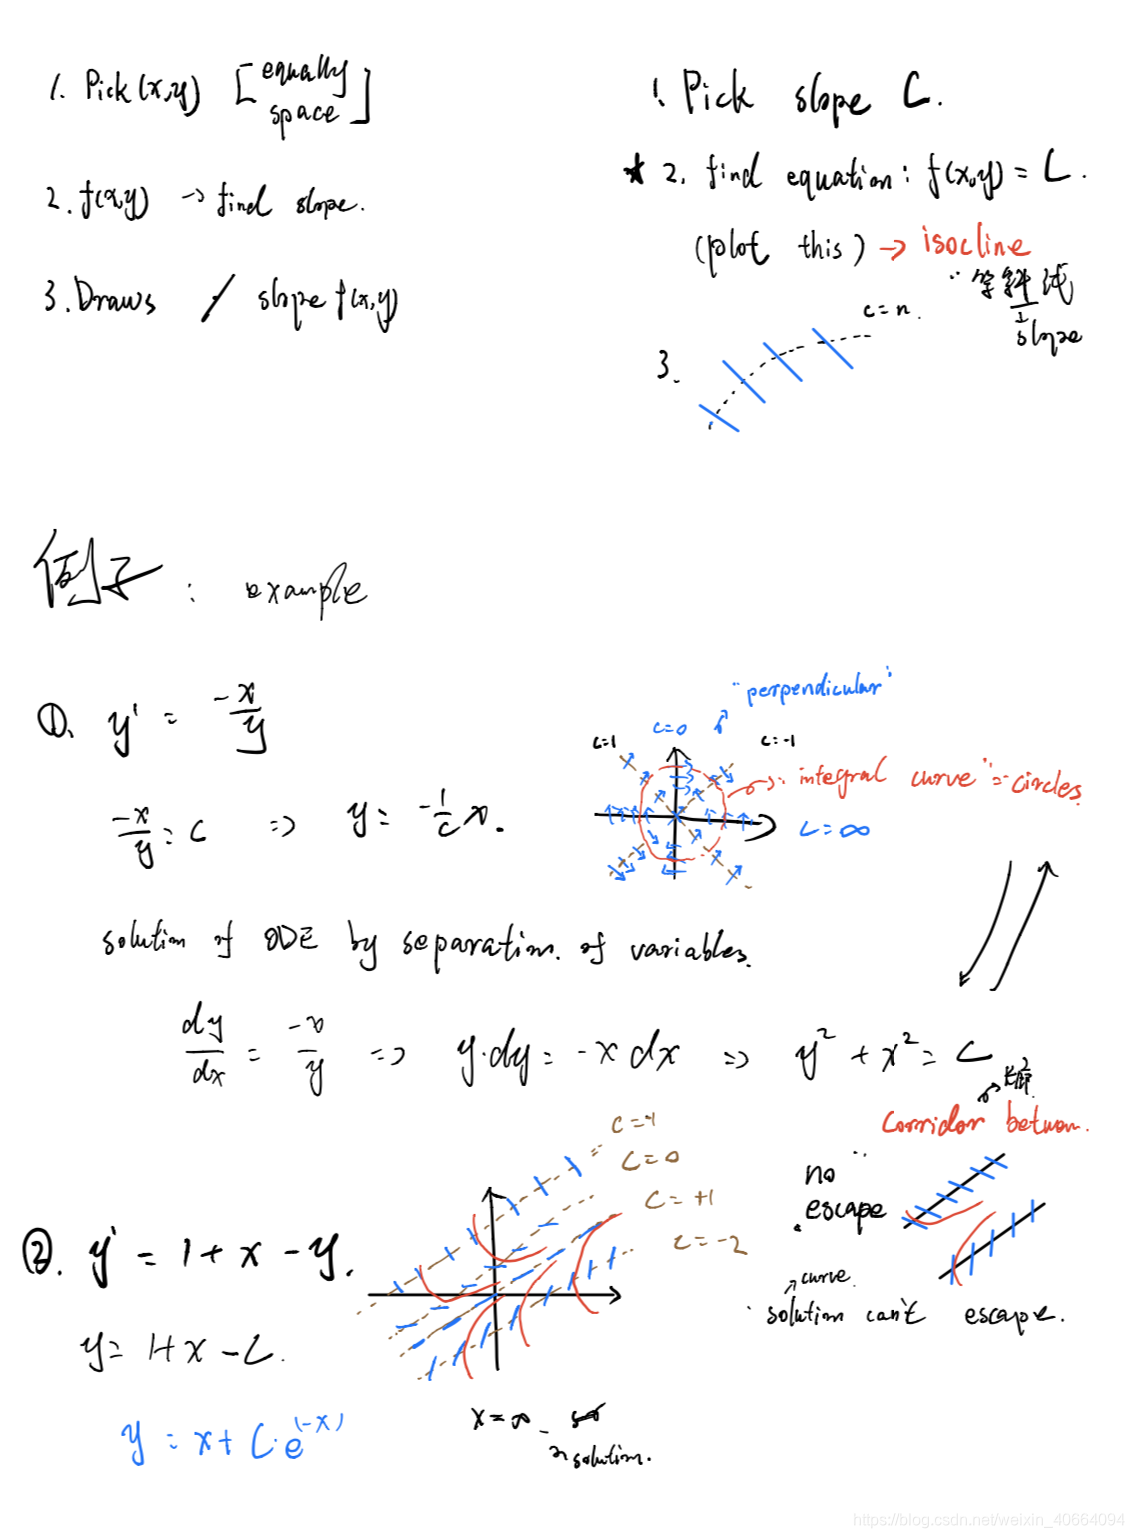 1. Pick (x,y) [equally space]
2. f(x,y) → find slope.
3. Draws / slope f(x,y)
1. Pick slope C.
★ 2. find equation: f(x,y) = C.
(plot this) → isocline
"等斜线
↓
slope
c=n.
3.
例子: example
①. y' = -x/y
-x/y = C => y = -1/c x.
"perpendicular"
c=1
c=0
c=-1
"integral curve" = circles.
C=∞
solution of ODE by separation of variables.
dy/dx = -x/y => y·dy = -x dx => y² + x² = C
Corridor between.
②. y' = 1+x-y.
y = 1+x-C.
y = x+C·e^(-x)
C=-1
C=0
C=+1
C=-2
"no escape"
curve
solution can't escape.
x=∞
solution.
https://blog.csdn.net/weixin_40664094